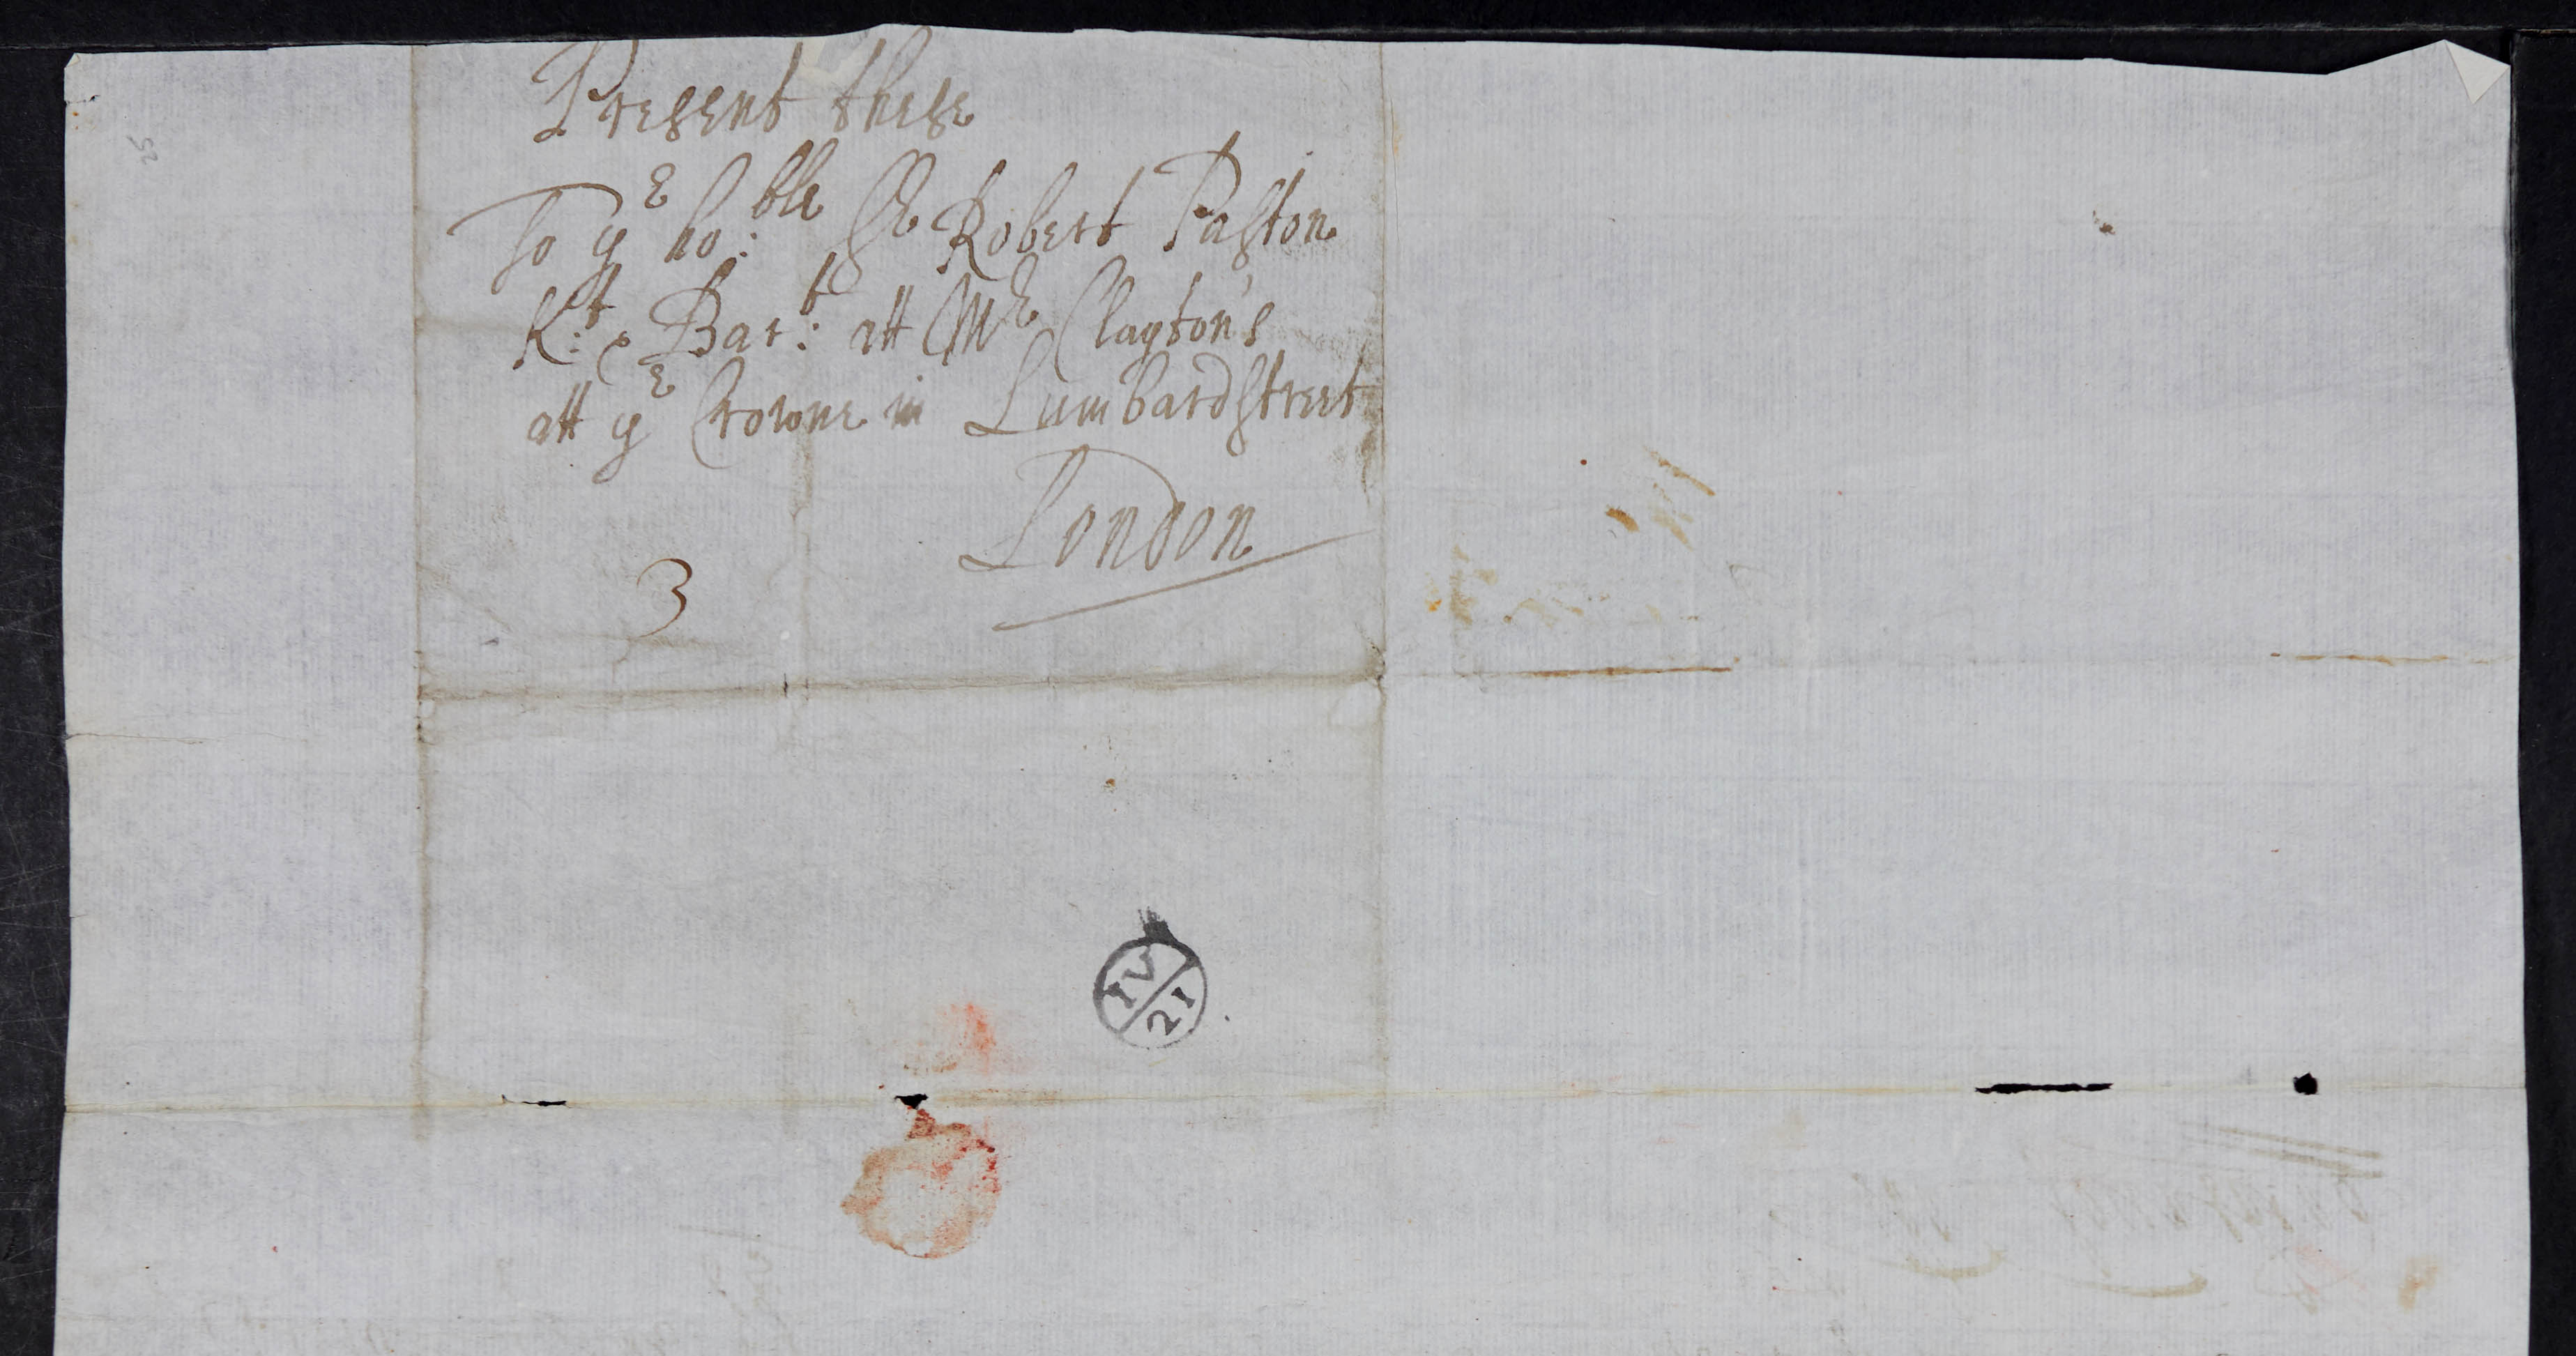 Present these
To yᵉ ho:ᵇˡᵉ Sʳ Robert Paston
K:ᵗ & Bar:ᵗ att Mʳ Clayton's
att yᵉ Crowne in Lumbardstreet
London
3
IV
21
25